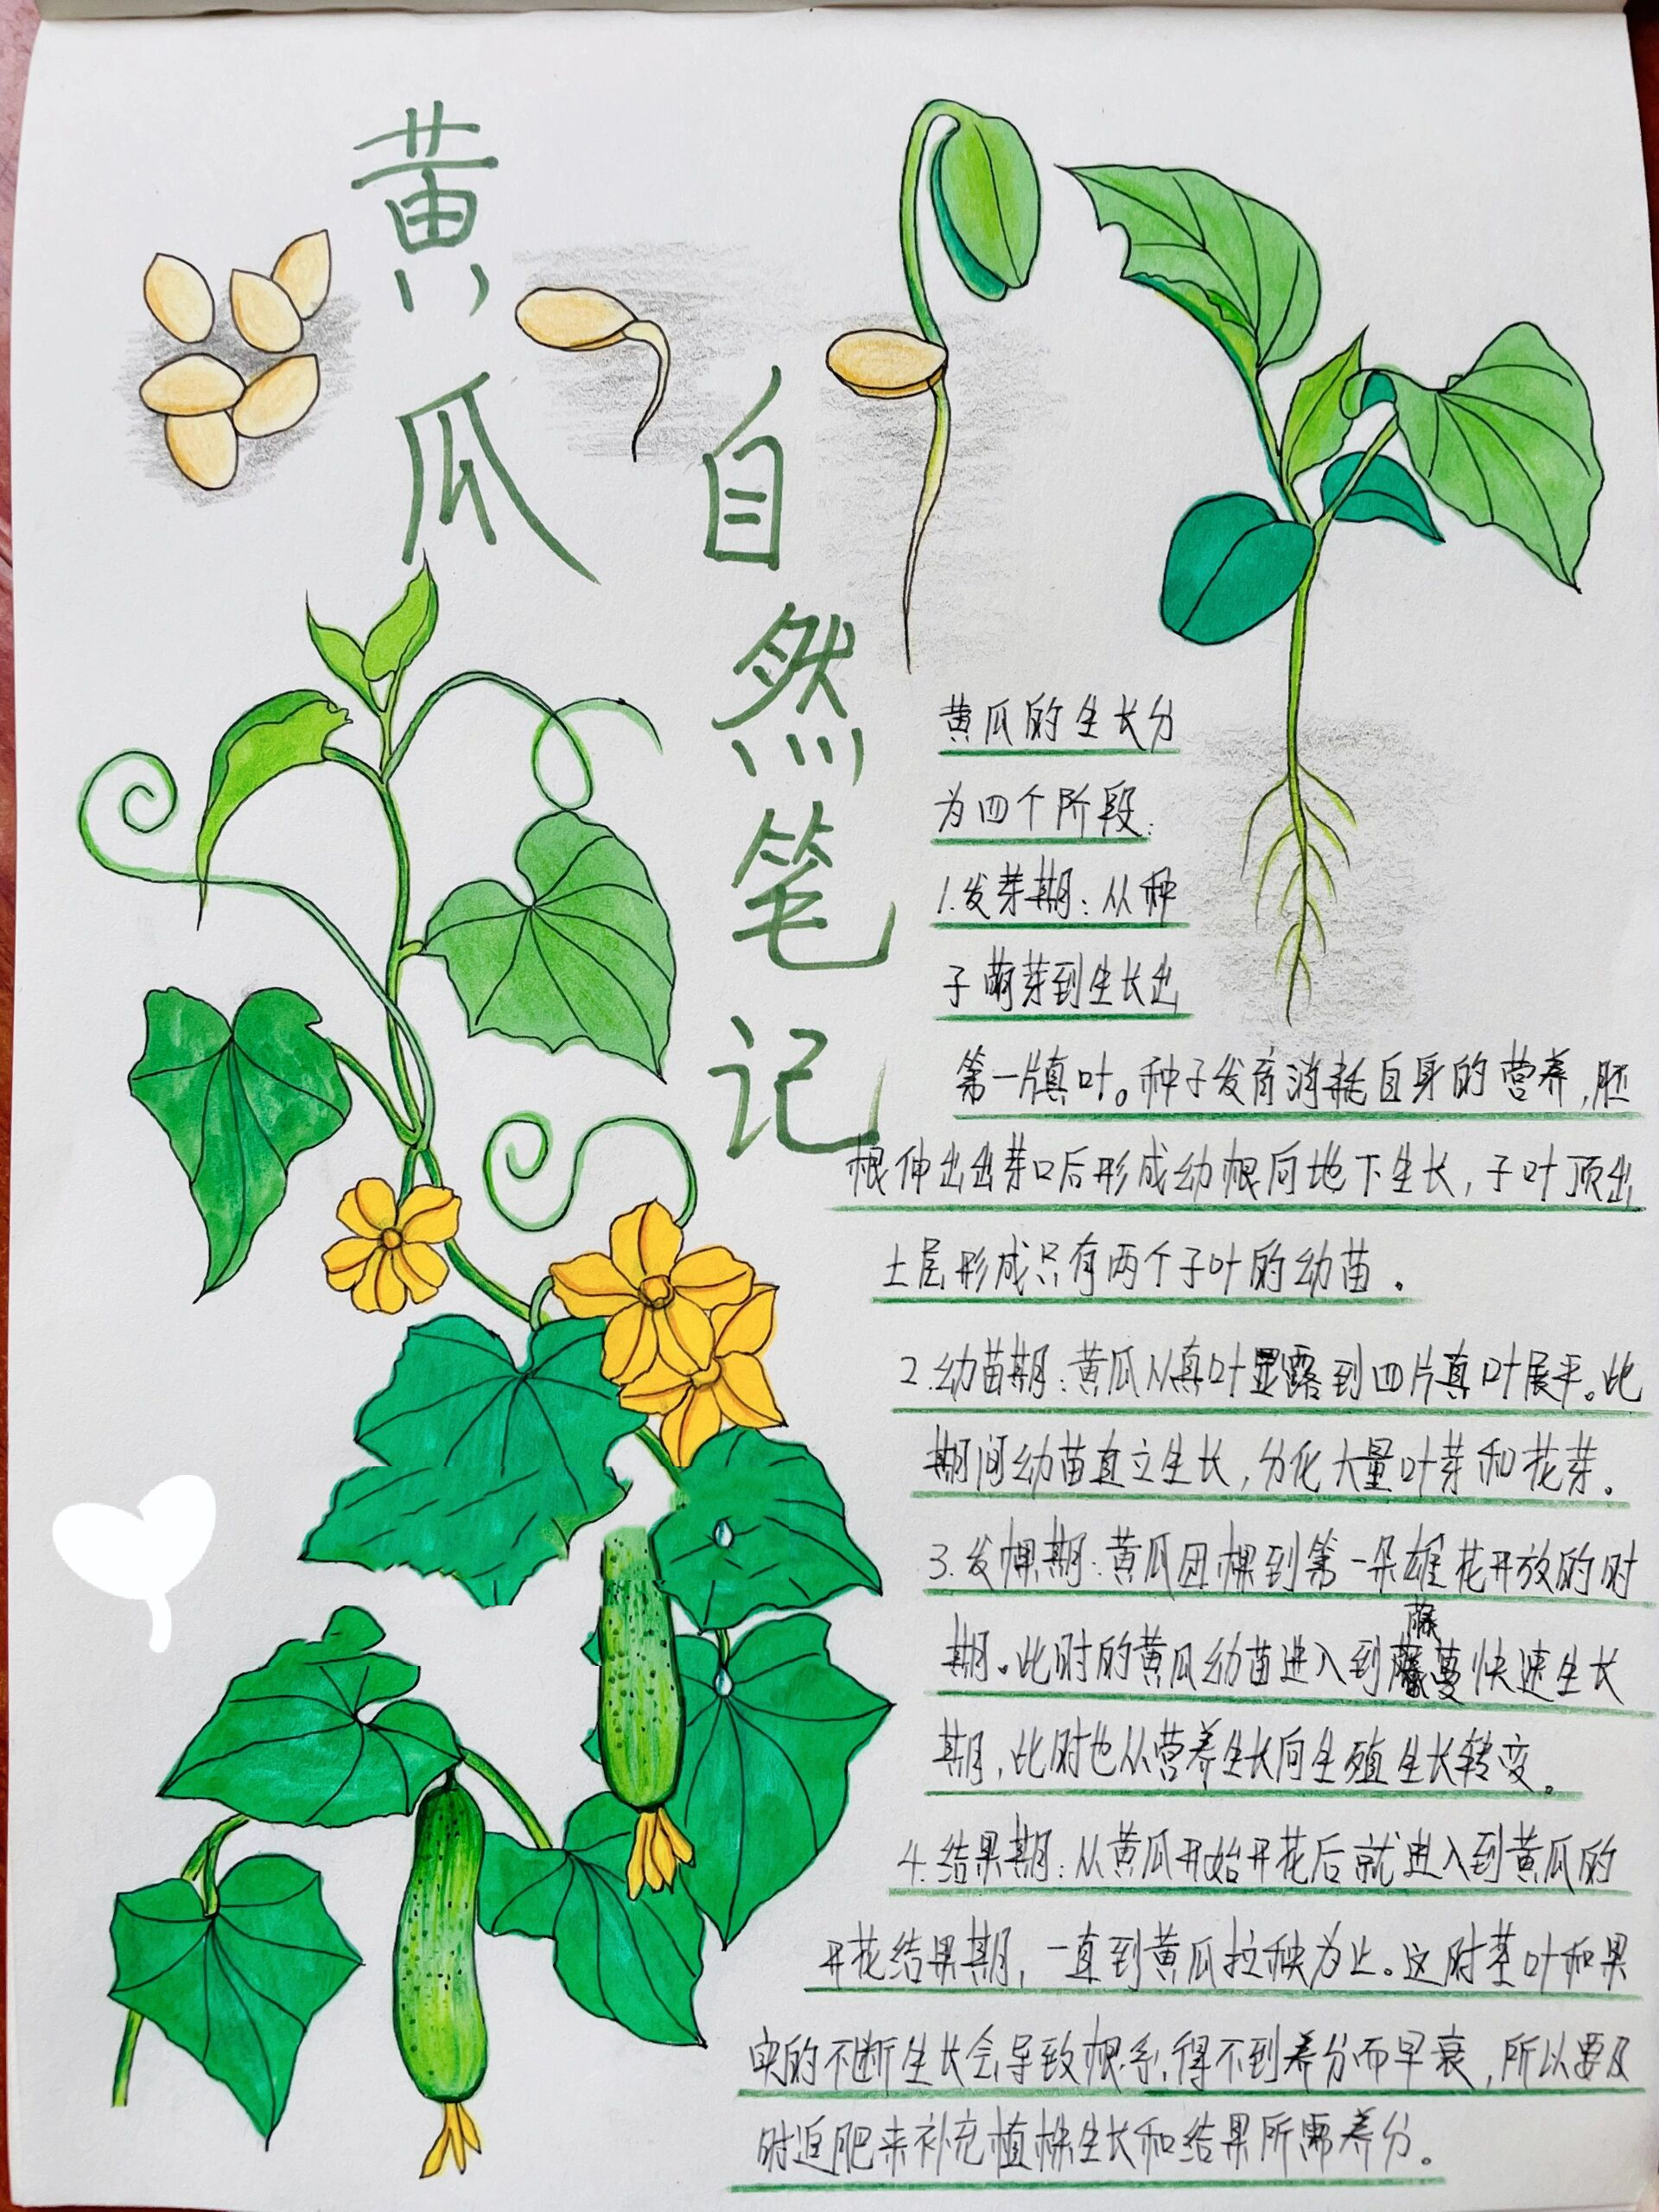 黄瓜
自然笔记
黄瓜的生长分
为四个阶段:
1.发芽期:从种
子萌芽到生长出
第一片真叶。种子发育消耗自身的营养,胚
根伸出出芽口后形成幼根向地下生长,子叶顶出
土层形成只有两个子叶的幼苗。
2.幼苗期:黄瓜从真叶显露到四片真叶展平。此
期间幼苗直立生长,分化大量叶芽和花芽。
3.发棵期:黄瓜团棵到第一朵雄花开放的时
期。此时的黄瓜幼苗进入到藤蔓快速生长
期,此时也从营养生长向生殖生长转变。
4.结果期:从黄瓜开始开花后就进入到黄瓜的
开花结果期,一直到黄瓜拉秧为止。这时茎叶和果
实的不断生长会导致根系得不到养分而早衰,所以要及
时追肥来补充植株生长和结果所需养分。